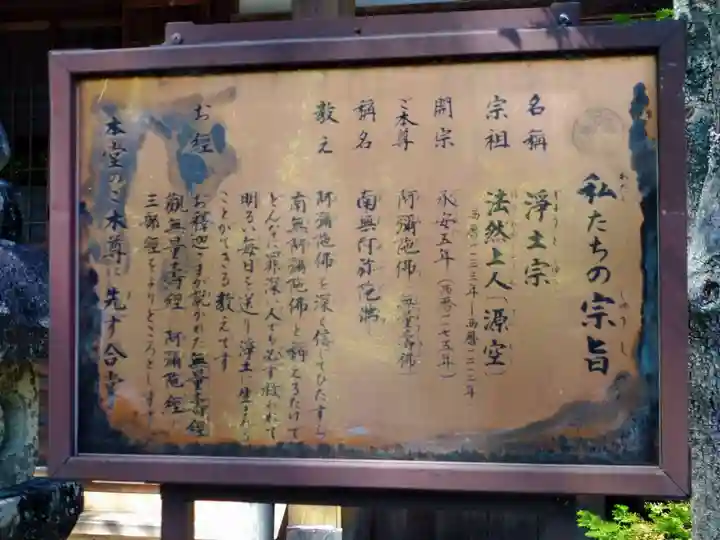 私たちの宗旨
名稱 淨土宗
宗祖 法然上人（源空）
西暦一一三三年―西暦一二一二年
開宗 承安五年（西暦一一七五年）
ご本尊 阿彌陀佛（無量壽佛）
稱名 南無阿弥陀佛
教え 阿彌陀佛を深く信じてひたすら
南無阿彌陀佛と稱えるだけで
どんなに罪深い人でも必ず救われて
明るい毎日を送り淨土に生まれる
ことができる教えです
お經 お釋迦さまが説かれた無量壽經
觀無量壽經 阿彌陀經
三部經をよりどころとします
本堂のご本尊に先ず合掌